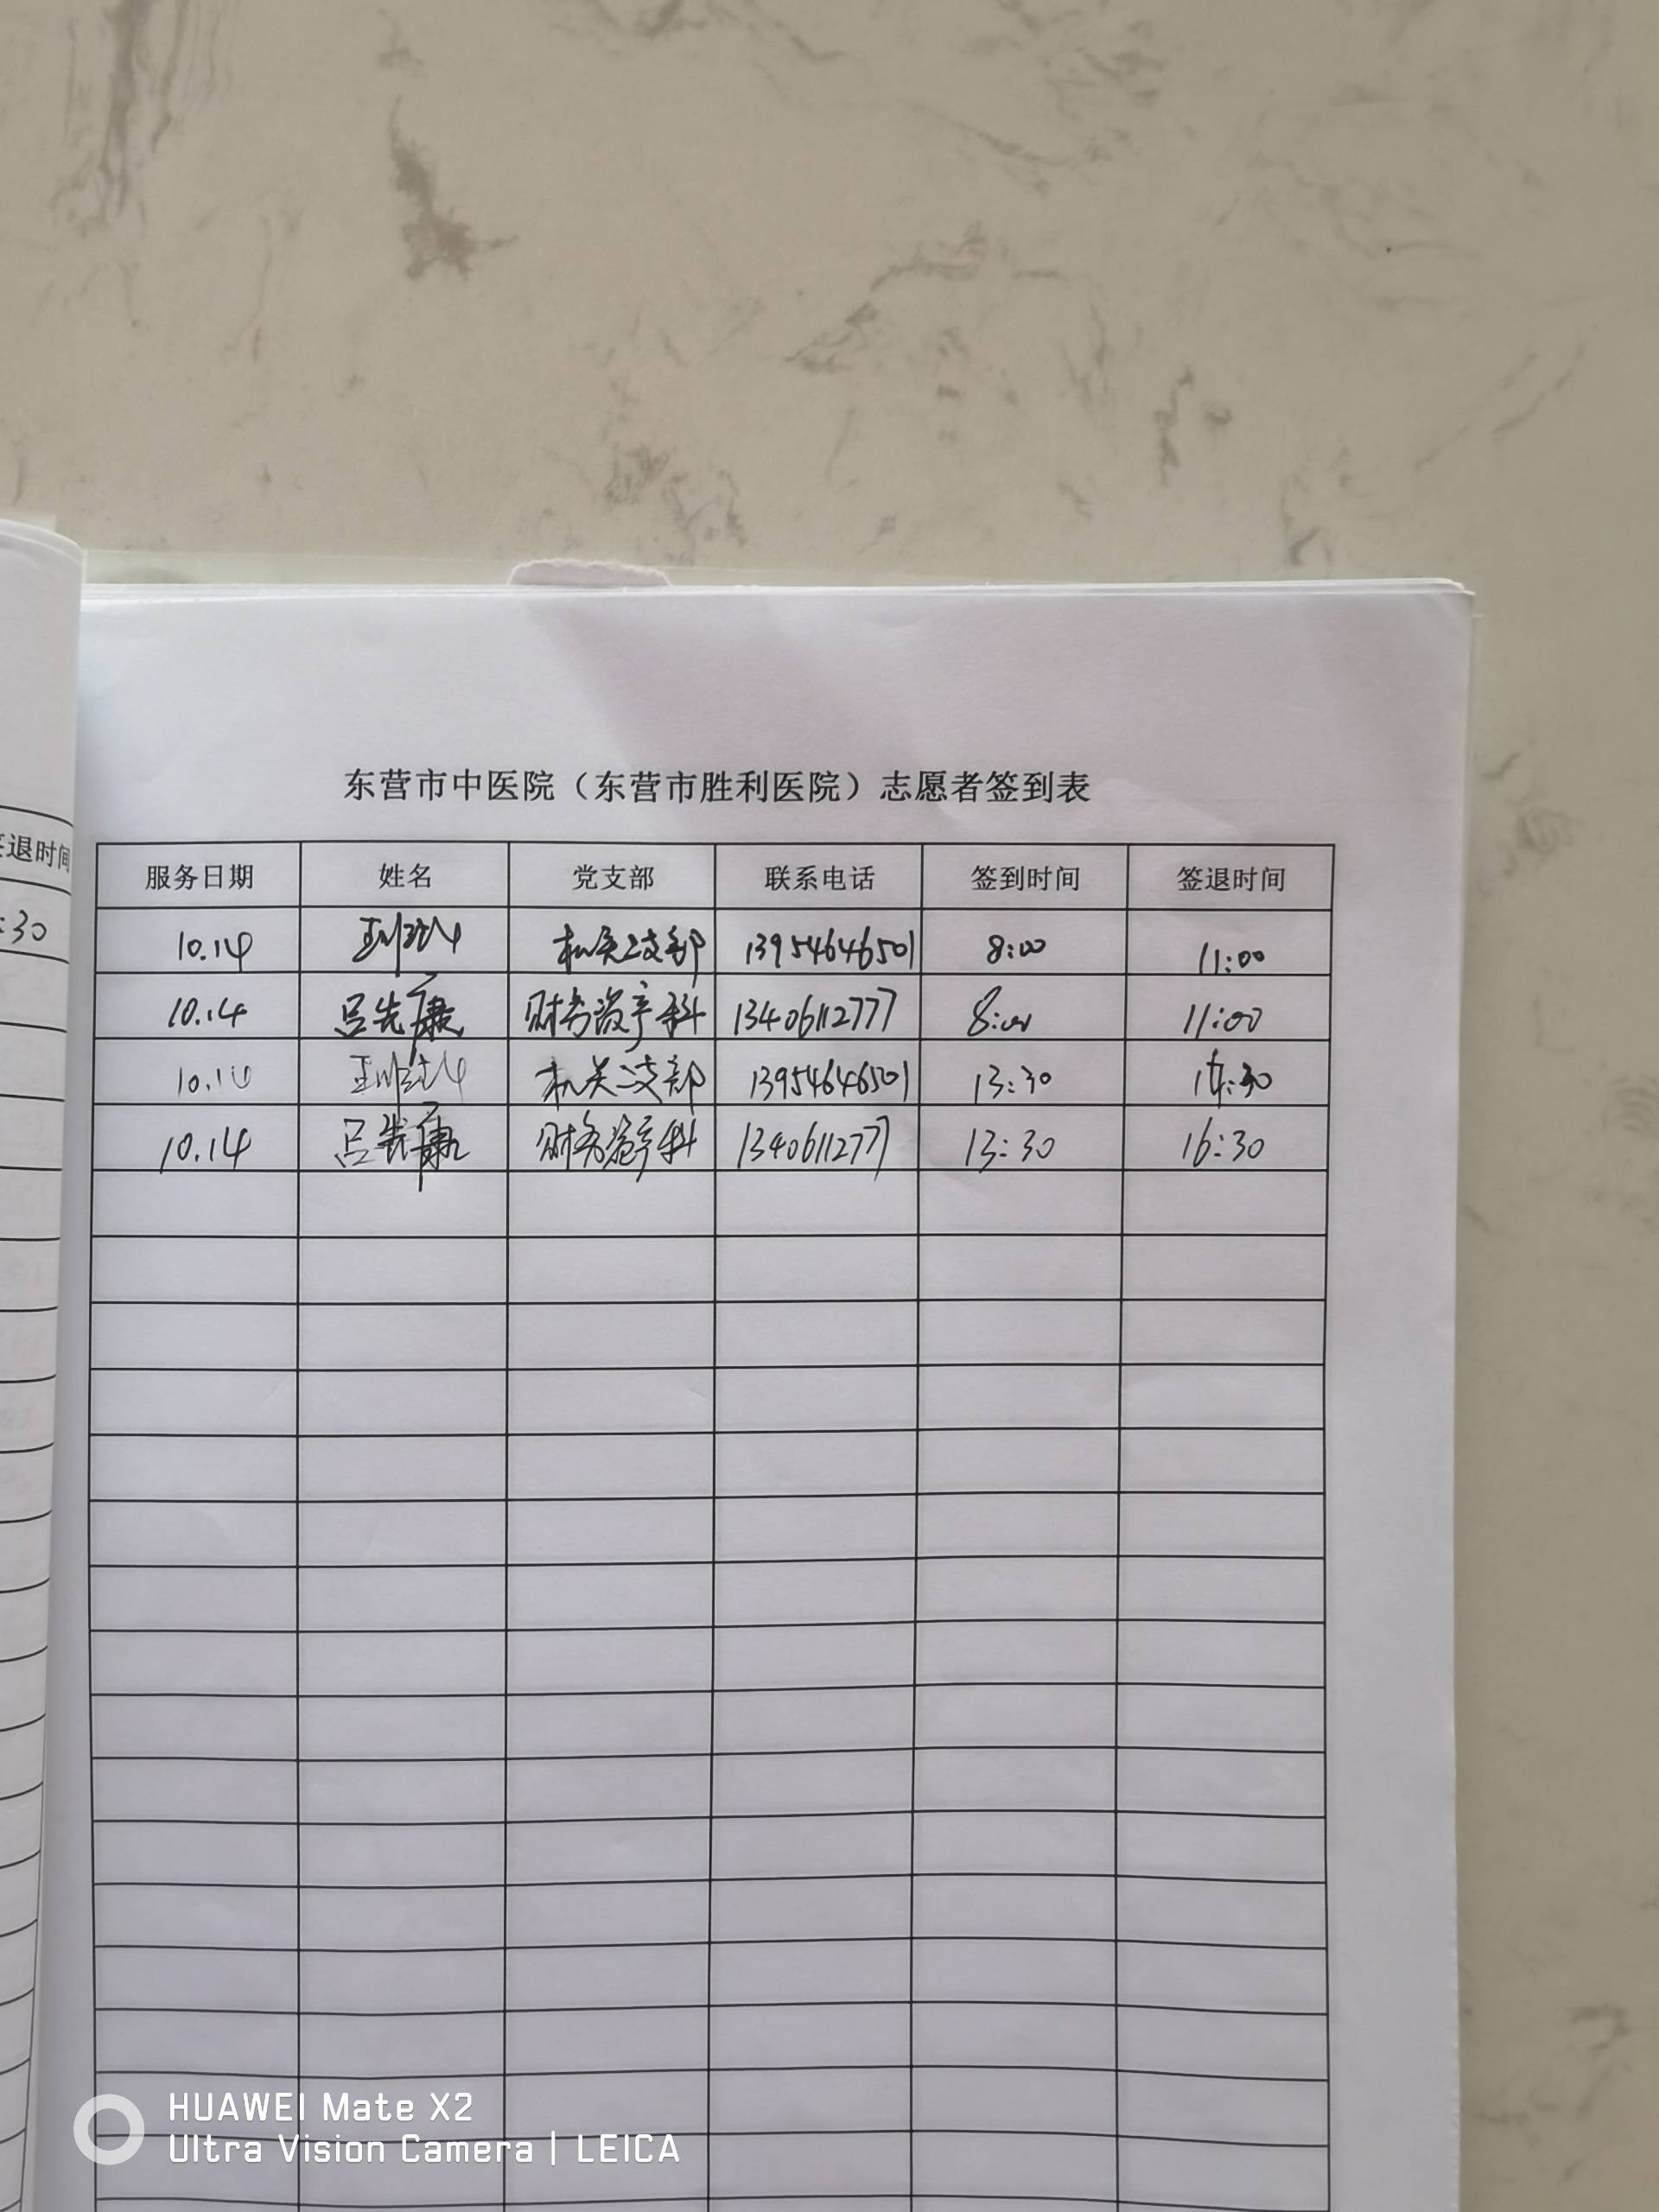 签退时间
:30
东营市中医院（东营市胜利医院）志愿者签到表
服务日期 姓名 党支部 联系电话 签到时间 签退时间
10.14 机关二支部 13954646501 8:00 11:00
10.14 吕先康 财务资产科 13406112777 8:00 11:00
10.14 机关二支部 13954646501 13:30 16:30
10.14 吕先康 财务资产科 13406112777 13:30 16:30
HUAWEI Mate X2
Ultra Vision Camera | LEICA